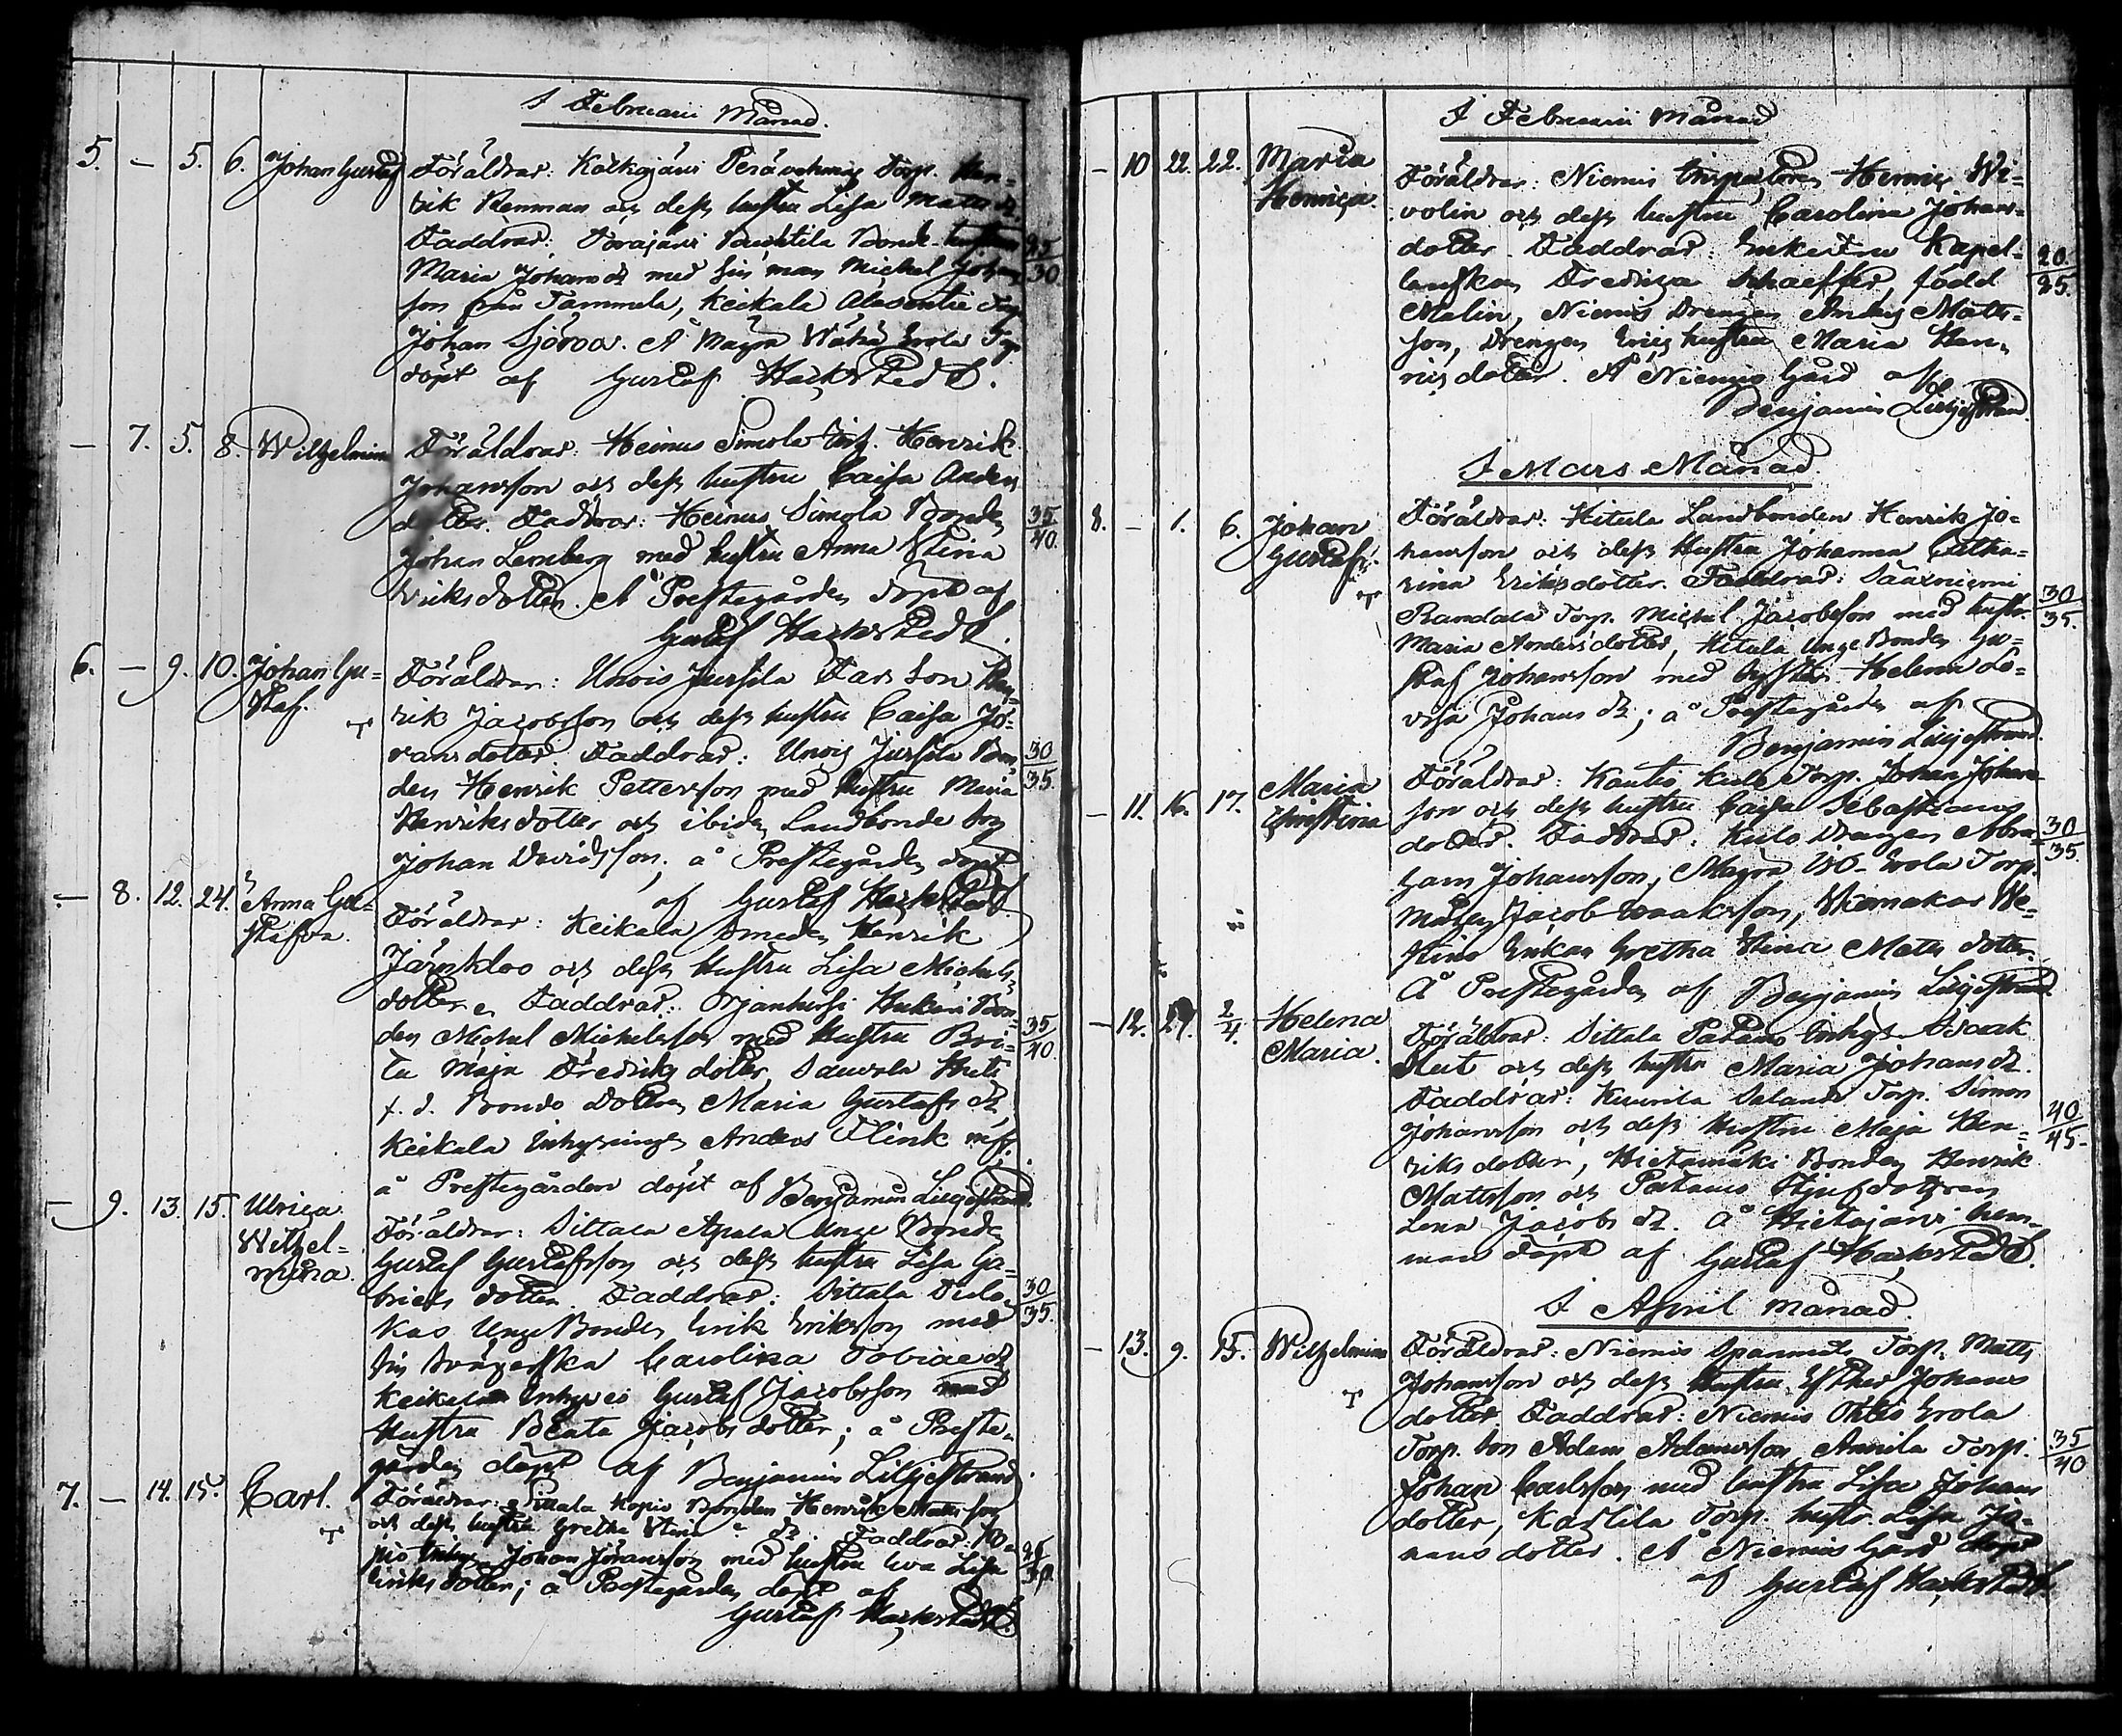 I Februarii Månad.
5. – 5. 6. Johan Gustaf Föräldrar: Kalkajärvi Torp. Hen-
rik Renman och dess hustru Lisa Matts dr.
Faddrar: Torajärvi Bonde hustrun 25/30
Maria Johans dr med sin man Michel Johans
son från Tammela, Keikala Torp.
Johan Sjörroos. Å Mägrä Wähä Erola Torp
döpt af Gustaf Hackstedt.
– 7. 5. 8. Wilhelmina Föräldrar: Heinus Simola Inh. Henrik
Johansson och dess hustru Caisa Anders
dotter. Faddrar: Heinus Simola Bonden 35/40.
Johan Lemberg med hustru Anna Stina
Eriksdotter. Å Prestegården döpt af
Gustaf Hackstedt.
6. – 9. 10. Johan Gu= Föräldrar: Unois Jussila Far Son Hen-
staf. rik Jacobsson och dess hustru Caisa Jö-
ransdotter. Faddrar: Unois Jussila Bon- 30/35.
den Henrik Pettersson med hustru Maria
Henriksdotter och ibidem Landbonde Son
Johan Davidsson; å Prestegården döpt
af Gustaf Hackstedt
– 8. 12. 24. Anna Gu= Föräldrar: Keikala Smeden Henrik
stafva. Järnkloo och dess hustru Lisa Michels
dotter. Faddrar: Orjanhirsi Bon-
den Michel Michelsson med hustru Bri- 35/40.
ta Maja Fredriks dotter, Sauvala
f. d. Bonde Dottren Maria Gustafs dr,
Keikala Inhysingen Anders Flink
å Prestegården döpt af Benjamin Liljestrand.
– 9. 13. 15. Ulrica Föräldrar: Sittala Apala Unge Bonden
Wilhel= Gustaf Gustafsson och dess hustru Lisa Ga-
mina. briels dotter. Faddrar: Sittala 30/35.
Unge Bonden Erik Eriksson med
sin Svägerska Carolina Tobiae dr
Keikala Inhyses Gustaf Jacobsson med
hustru Beata Jacobs dotter; å Preste-
gården döpt af Benjamin Liljestrand.
7. – 14. 15. Carl. Föräldrar: Sittala Kopio Bonden Henrik Mattsson
och dess hustru Gretha Stina dr. Faddrar: Ko-
pio Inhys. Johan Jöransson med hustru Eva Lisa 25/30.
Eriks dotter; å Prestegården döpt af
Gustaf Hackstedt.
I Februarii Månad
– 10 22. 22. Maria Föräldrar: Niemis Inspectoren Henric Wi-
Henrica. volin och dess hustru Carolina Johans-
dotter. Faddrar: Enkefru Kapel- 20/25.
lanskan Fredrica Schaeffer, född
Malin, Niemis Drengen Anders Matts-
son, Drengen Erics hustru Maria Hen-
rics dotter. Å Niemis Gård af
Benjamin Liljestrand.
I Mars Månad
8. – 1. 6. Johan Föräldrar: Hitula Landbonden Henrik Jo-
Gustaf. hansson och dess Hustru Johanna Catha-
rina Eriksdotter. Faddrar: Sääxniemi
Randala Torp. Michel Jacobsson med hustr. 30/35.
Maria Andersdotter, Hitula Unge Bonden Gu-
staf Johansson med Syster Helena Lo-
visa Johans dr; å Prestegården af
Benjamin Liljestrand.
– 11. 16. 17. Maria Föräldrar: Kantis Kulo Torp. Johan Johans-
Christina son och dess hustru Caisa Sebastians
dotter. Faddrar: Kulo Drengen Abra- 30/35.
ham Johansson, Mägrä Iso-Erola Torp.
Mågen Jacob Isaaksson,
Enkan Gretha Stina Matts dotter.
Å Prestegården af Benjamin Liljestrand.
– 12. 27. 2/4. Helena Föräldrar: Sittala Patamo Inhys. Isaak
Maria. och dess hustru Maria Johans dr.
Faddrar: Salander Torp. Simon 40/45.
Johansson och dess hustru Maja Hen-
riks dotter, Hietamäki Bonden Henrik
Mattsson och Patamo Stjufdottren
Lena Jacobs dr. Å Hietajärvi hem-
man döpt af Gustaf Hackstedt.
I April månad.
– 13. 9. 15. Wilhelmina Föräldrar: Niemis Torp. Matts
Johansson och dess hustru Esther Johans
dotter. Faddrar: Niemis Ohtis Erola
Torp. Son Adam Adamsson, Annila Torp. 35/40
Johan Carlsson med hustru Lisa Johans
dotter, Karlila Torp. hustr. Lisa Jo-
hans dotter. Å Niemis Gård döpt
af Gustaf Hackstedt.